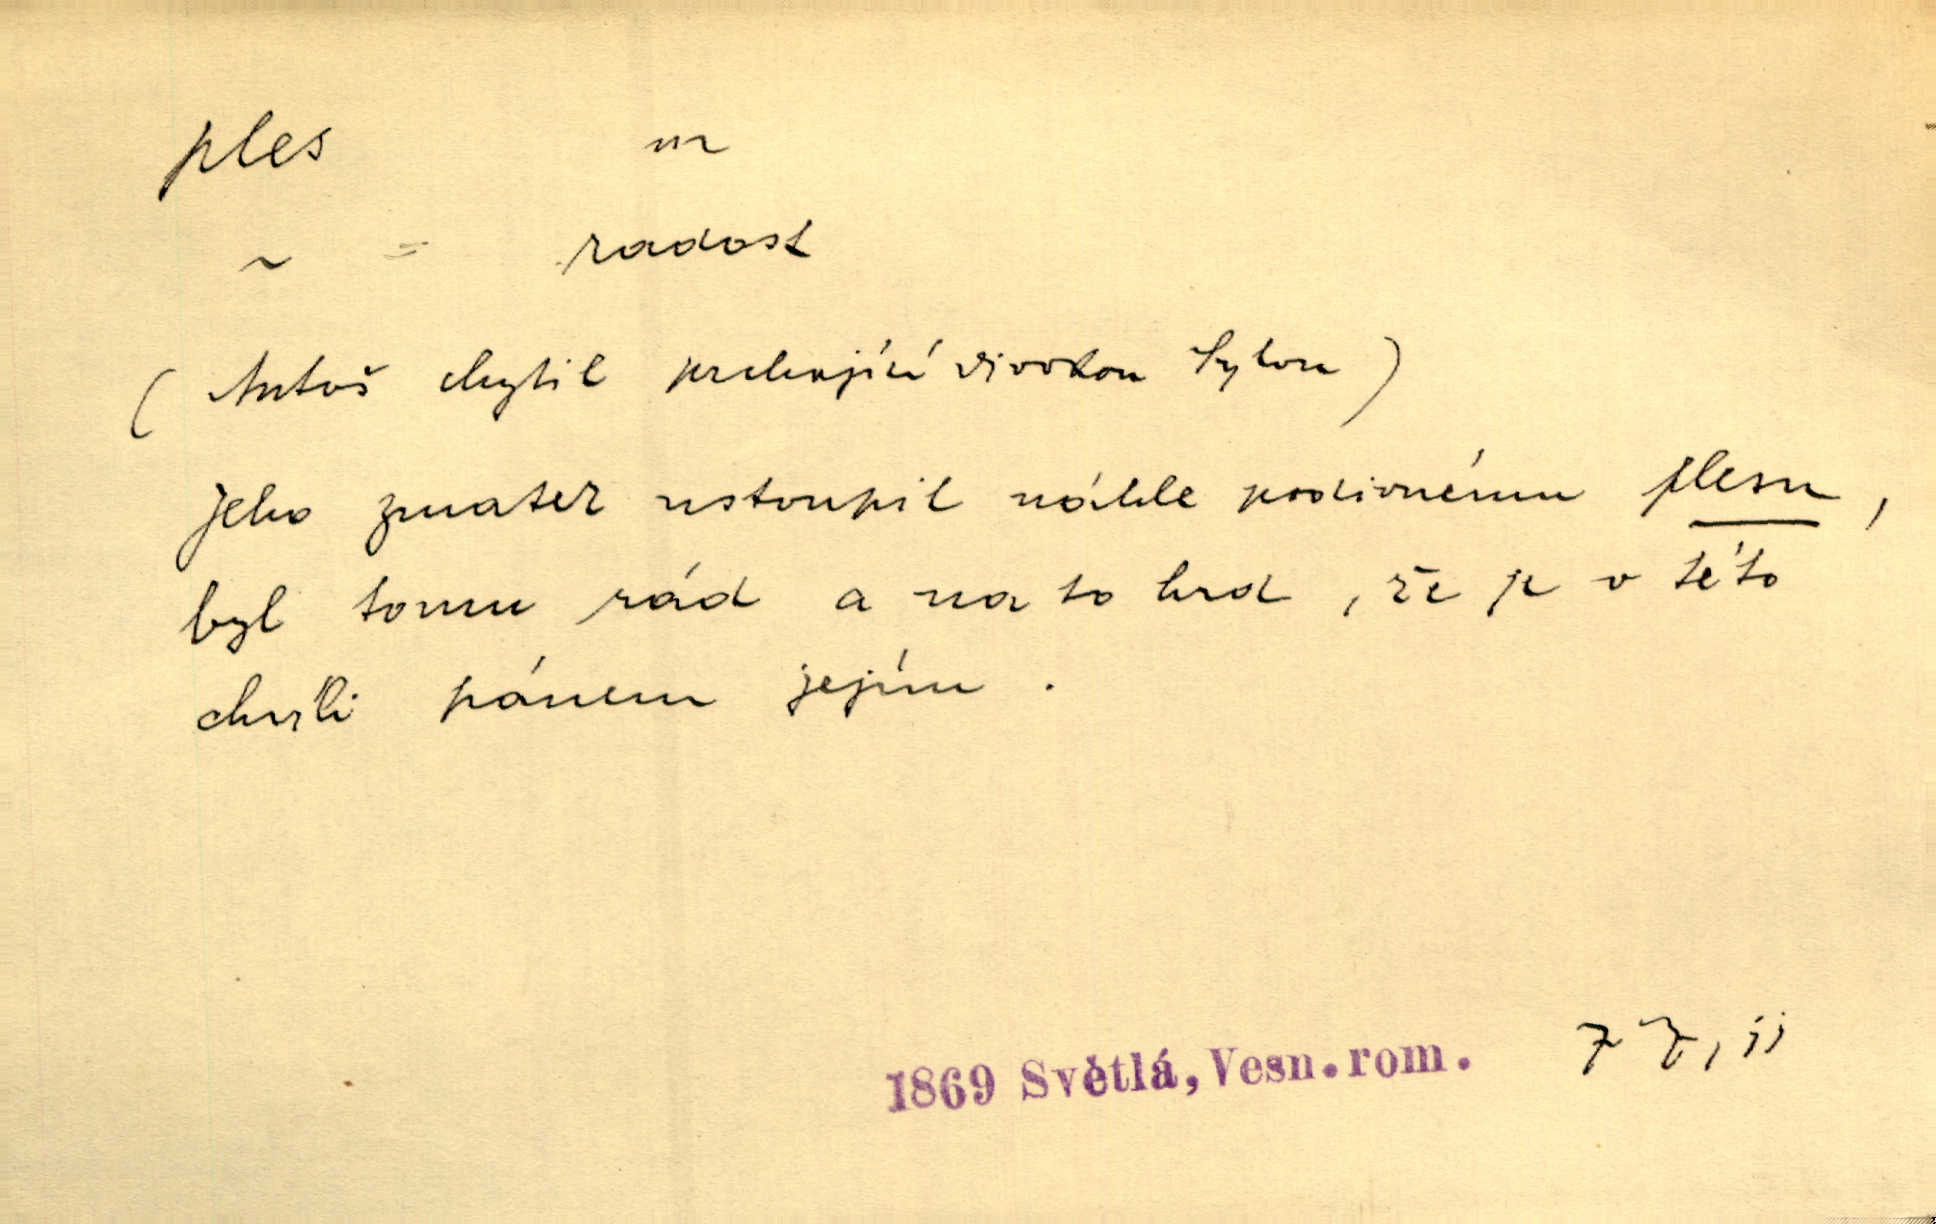 ples m
~ = radost
( Antoš chytil prchající divokou Sylvu )
jeho zmatek ustoupil náhle podivnému plesu ,
byl tomu rád a na to hrd , že je v této
chvíli pánem jejím .
1869 Světlá, Vesn. rom. 77, ii